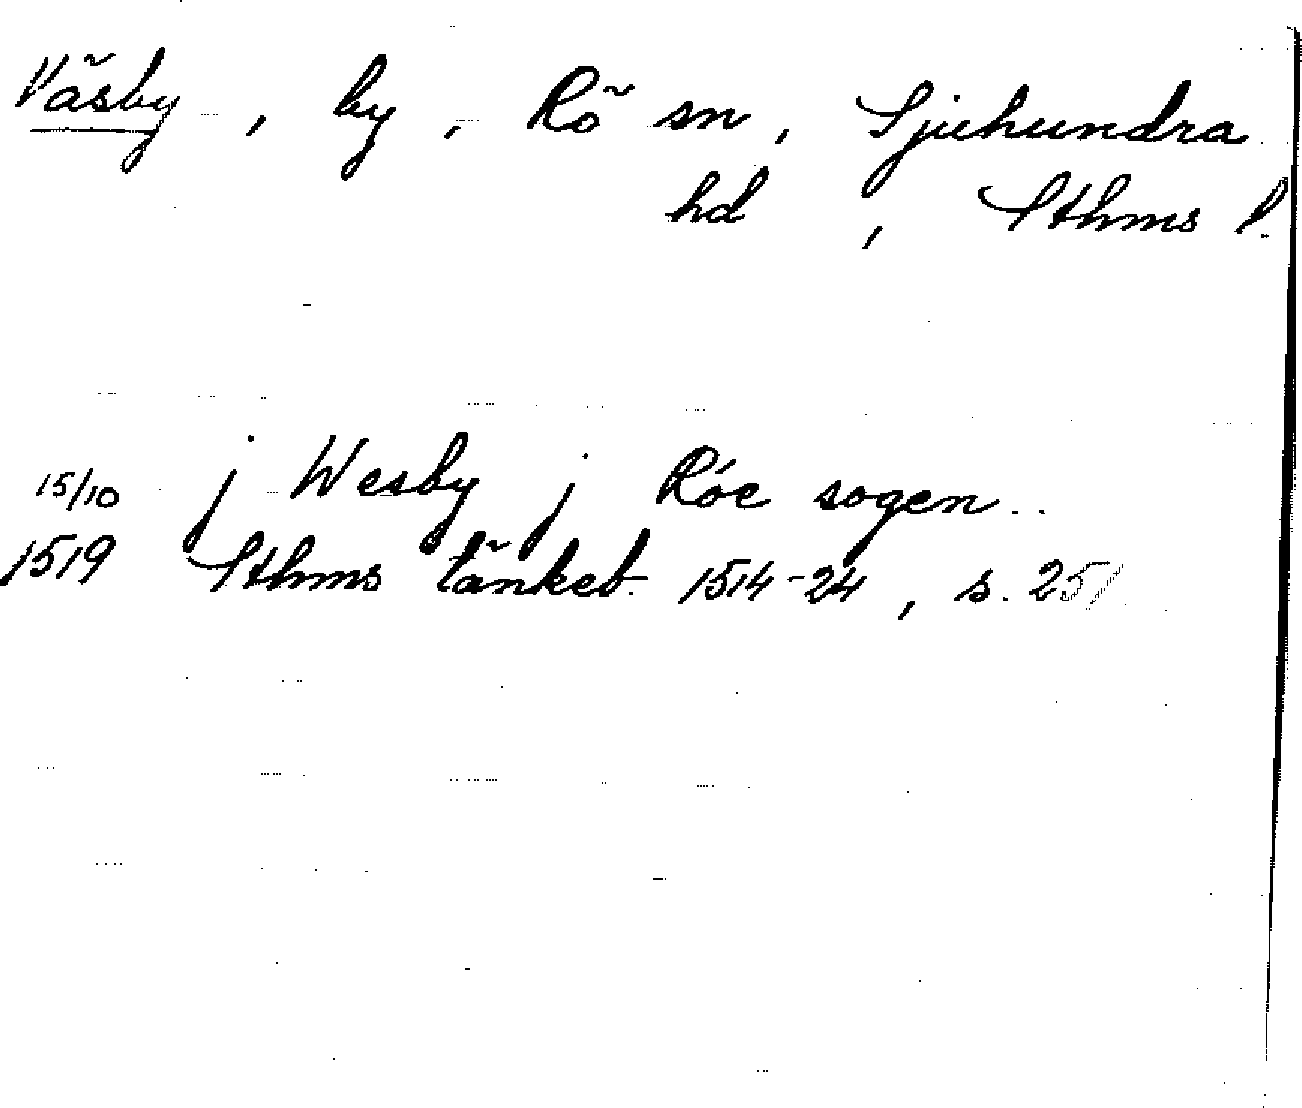 Väsby, by, Rö sn, Sjuhundra
hd, Sthms l.
15/10 j Wesby j Róe sogen..
1519 Sthms tänkeb. 1514-24, s. 251